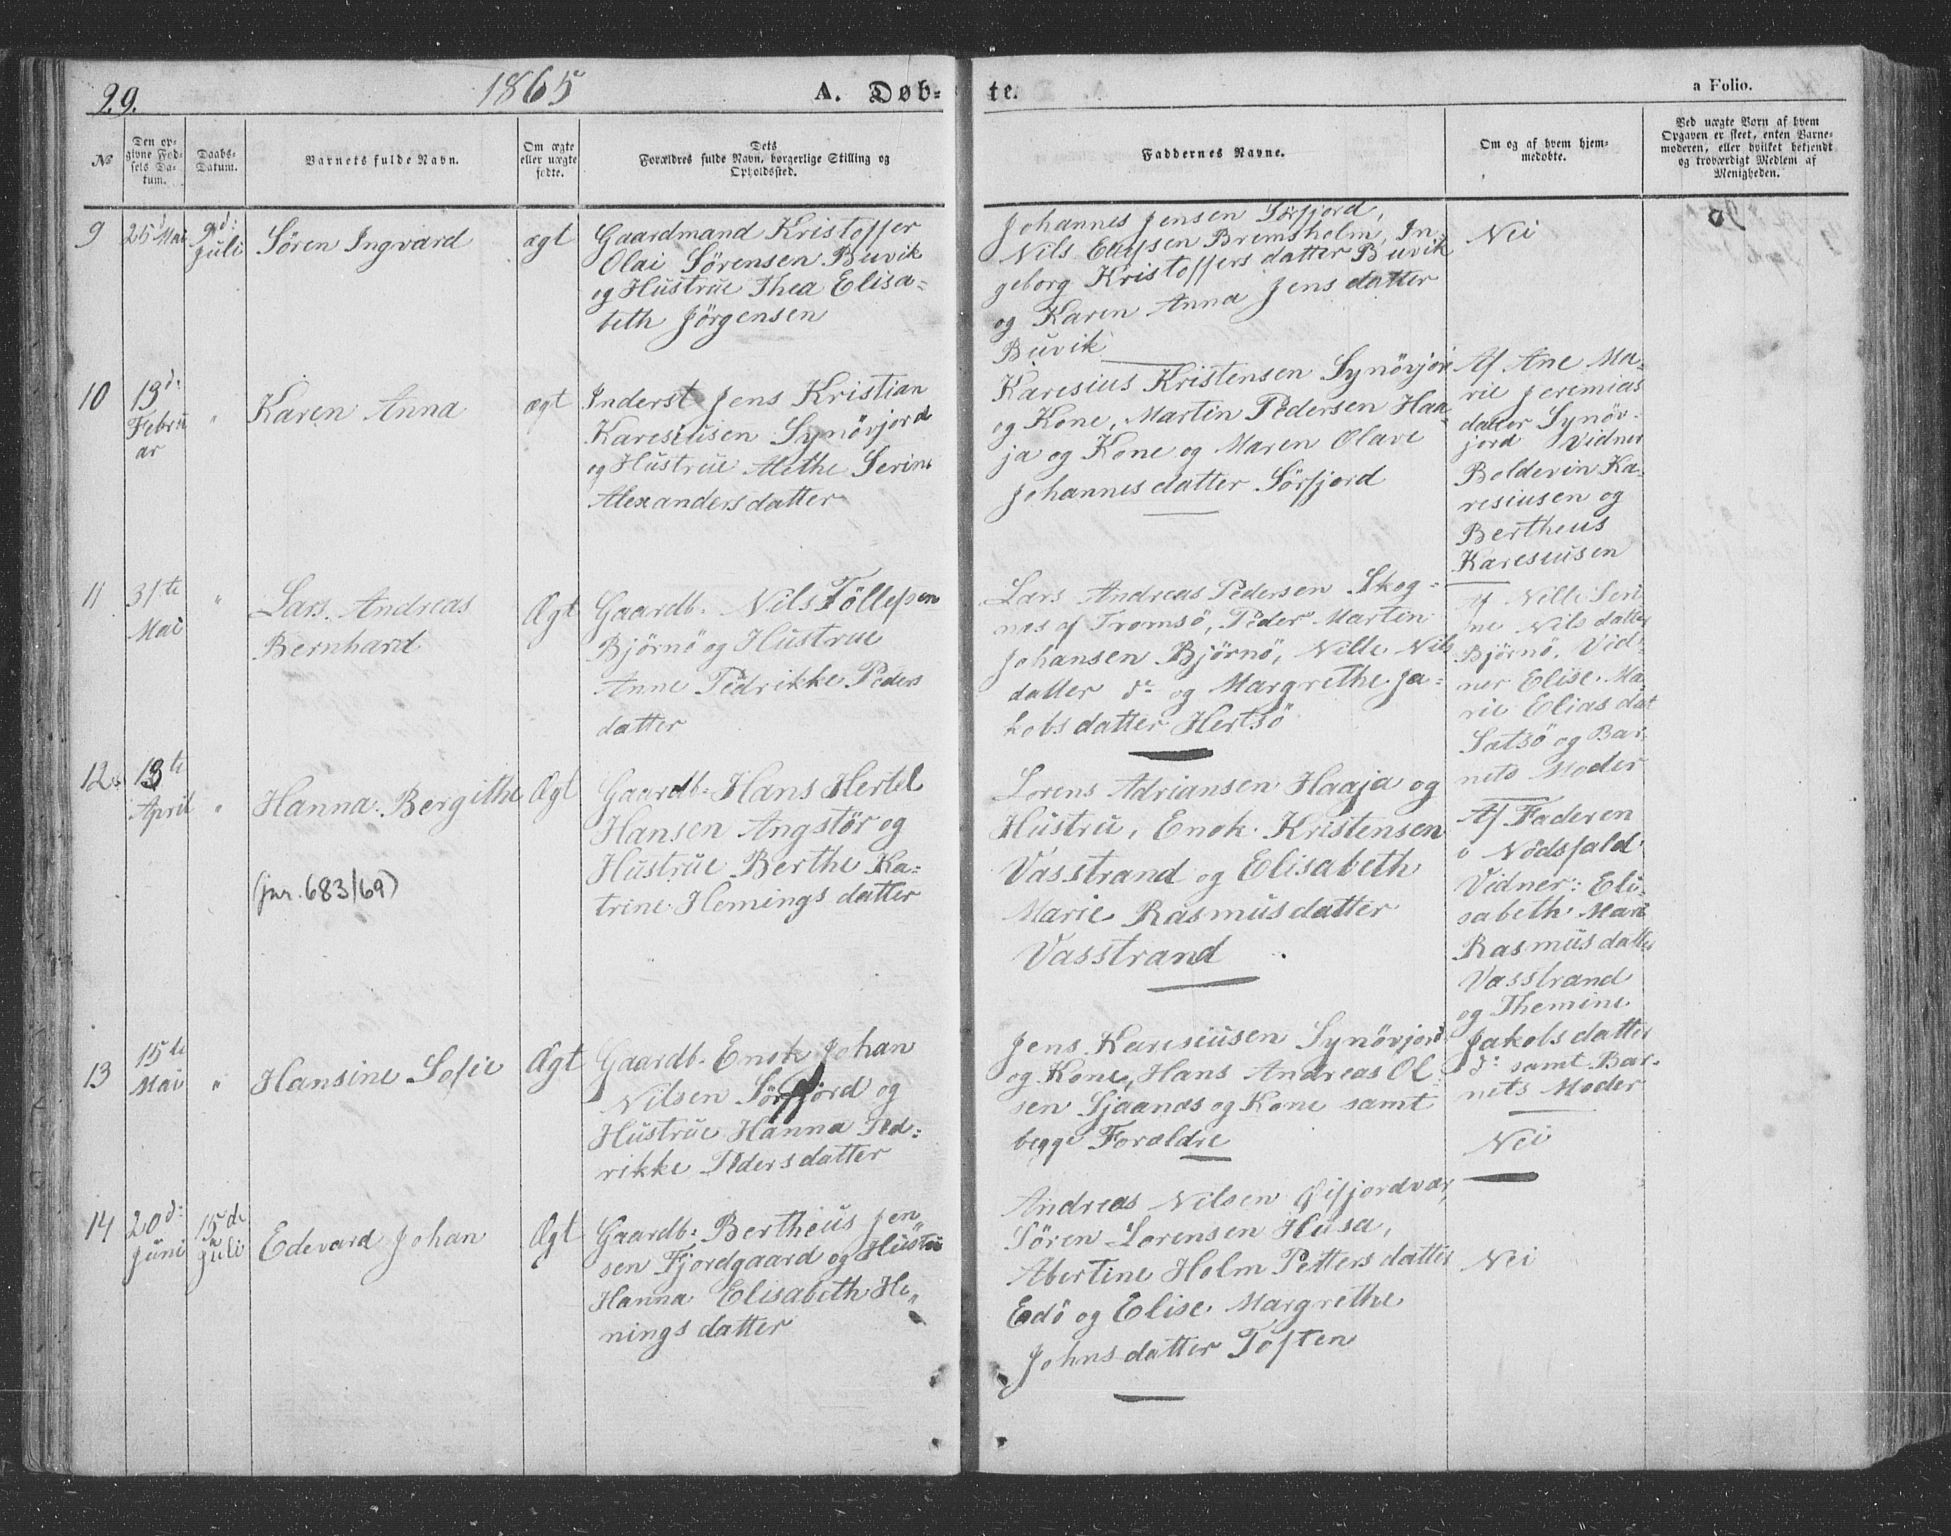 29.
1865
A. Døb-
te.
a Folio.
No
Den op-
givne Fød-
sels Da-
tum.
Daabs-
Datum.
Barnets fulde Navn.
Om ægte
eller uægte
fødte.
Dets
Forældres fulde Navn, borgerlige Stilling og
Opholdssted.
Faddernes Navne.
Om og af hvem hjem-
medøbte.
Ved uægte Børn af hvem
Opgaven er skeet, enten Barne-
moderen, eller hvilket bekjendt
og troværdigt Medlem af
Menigheden.
9
25 Mai
9d:
Juli
Søren Ingvard
ægt
Gaardmand Kristoffer
Olai Sørensen Buvik
og Hustrue Thea Elisa-
beth Jørgensen
Johannes Jensen Sørfjord,
Nils Ellefsen Bremsholm, In-
geborg Kristoffersdatter Buvik
og Karen Anna Jensdatter
Buvik
Nei
10
13d:
Febru
ar
"
Karen Anna
ægt
Inderst Jens Kristian
Karesiusen Synövjord
og Hustrue Alethe Serine
Alexandersdatter
Karesius Kristensen Synövjor
og Kone, Martin Pedersen Haa
ja og Kone og Maren Olave
Johannesdatter Sörfjord
Af Ane Ma-
rie Jeremias
datter Synöv-
jord Vidner
Boldevin Ka-
resiusen og
Bertheus
Karesiusen
11
31te
Mai
"
Lars Andreas
Bernhard
Ægt
Gaardb. Nils Töllefsen
Björnö og Hustrue
Anne Pedrikke Peders
datter
Lars Andreas Pedersen Skog-
nes af Tromsö, Peder Martin
Johansen Björnö, Nille Nils
datter do og Margrethe Ja-
kobsdatter Hertsö
Af Nille Seri
ne Nilsdatter
Björnö. Vid-
ner Elise Ma-
rie Eliasdat
Satsö og Bar-
nets Moder
12
13te
April
"
Hanna Bergithe
(jnr. 683/69)
Ægt
Gaardb. Hans Hertel
Hansen Angstör og
Hustrue Berthe Ka-
trine Hemingsdatter
Lorens Adriansen Haaja og
Hustru, Enok Kristensen
Vasstrand og Elisabeth
Marie Rasmusdatter
Vasstrand
Af Faderen
i Nödsfald
Vidner: Eli-
sabeth Mari
Rasmusdatter
Vasstrand
og Themine
Jakobsdatter
do samt Bar-
nets Moder
13
15te
Mai
"
Hansine Sofie
Ægt
Gaardb. Enok Johan
Nilsen Sörfjord og
Hustrue Hanna Ped-
rikke Pedersdatter
Jens Karesiusen Synövjord
og Kone, Hans Andreas Ol-
sen Sjaanas og Kone samt
begge Forældre
Nei
14
20d:
Juni
15de
Juli
Edevard Johan
Ægt
Gaardb. Bertheus Jen
sen Fjordgaard og Hustru
Hanna Elisabeth He-
ningsdatter
Andreas Nilsen Öifjordvær,
Sören Lorensen Husa,
Abertine Holm Pettersdatter
Edö og Elise Margrethe
Johnsdatter Toften
Nei